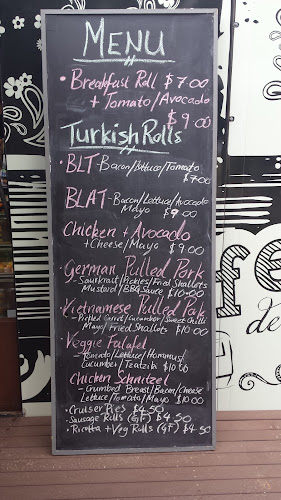 MENU
• Breakfast Roll $7.00
+ Tomato/Avocado
$9.00
Turkish Rolls
• BLT - Bacon/Lettuce/Tomato
$7.00
BLAT - Bacon/Lettuce/Avocado
Mayo $9.00
Chicken + Avocado
+ Cheese/Mayo $9.00
German Pulled Pork
- Saurkraut/Pickles/Fried Shallots
Mustard/BBQ Sauce $10.00
Vietnamese Pulled Pork
- Pickled Carrot/Cucumber/Sweet Chilli
Mayo/Fried Shallots $10.00
Veggie Falafel
- Tomato/Lettuce/Hommus/
Cucumber/Tzatziki $10.00
Chicken Schnitzel
- Crumbed Breast/Bacon/Cheese
Lettuce/Tomato/Mayo $10.00
• Cruiser Pies $4.50
• Sausage Rolls (GF) $4.50
• Ricotta + Veg Rolls (GF) $4.50
fe
de